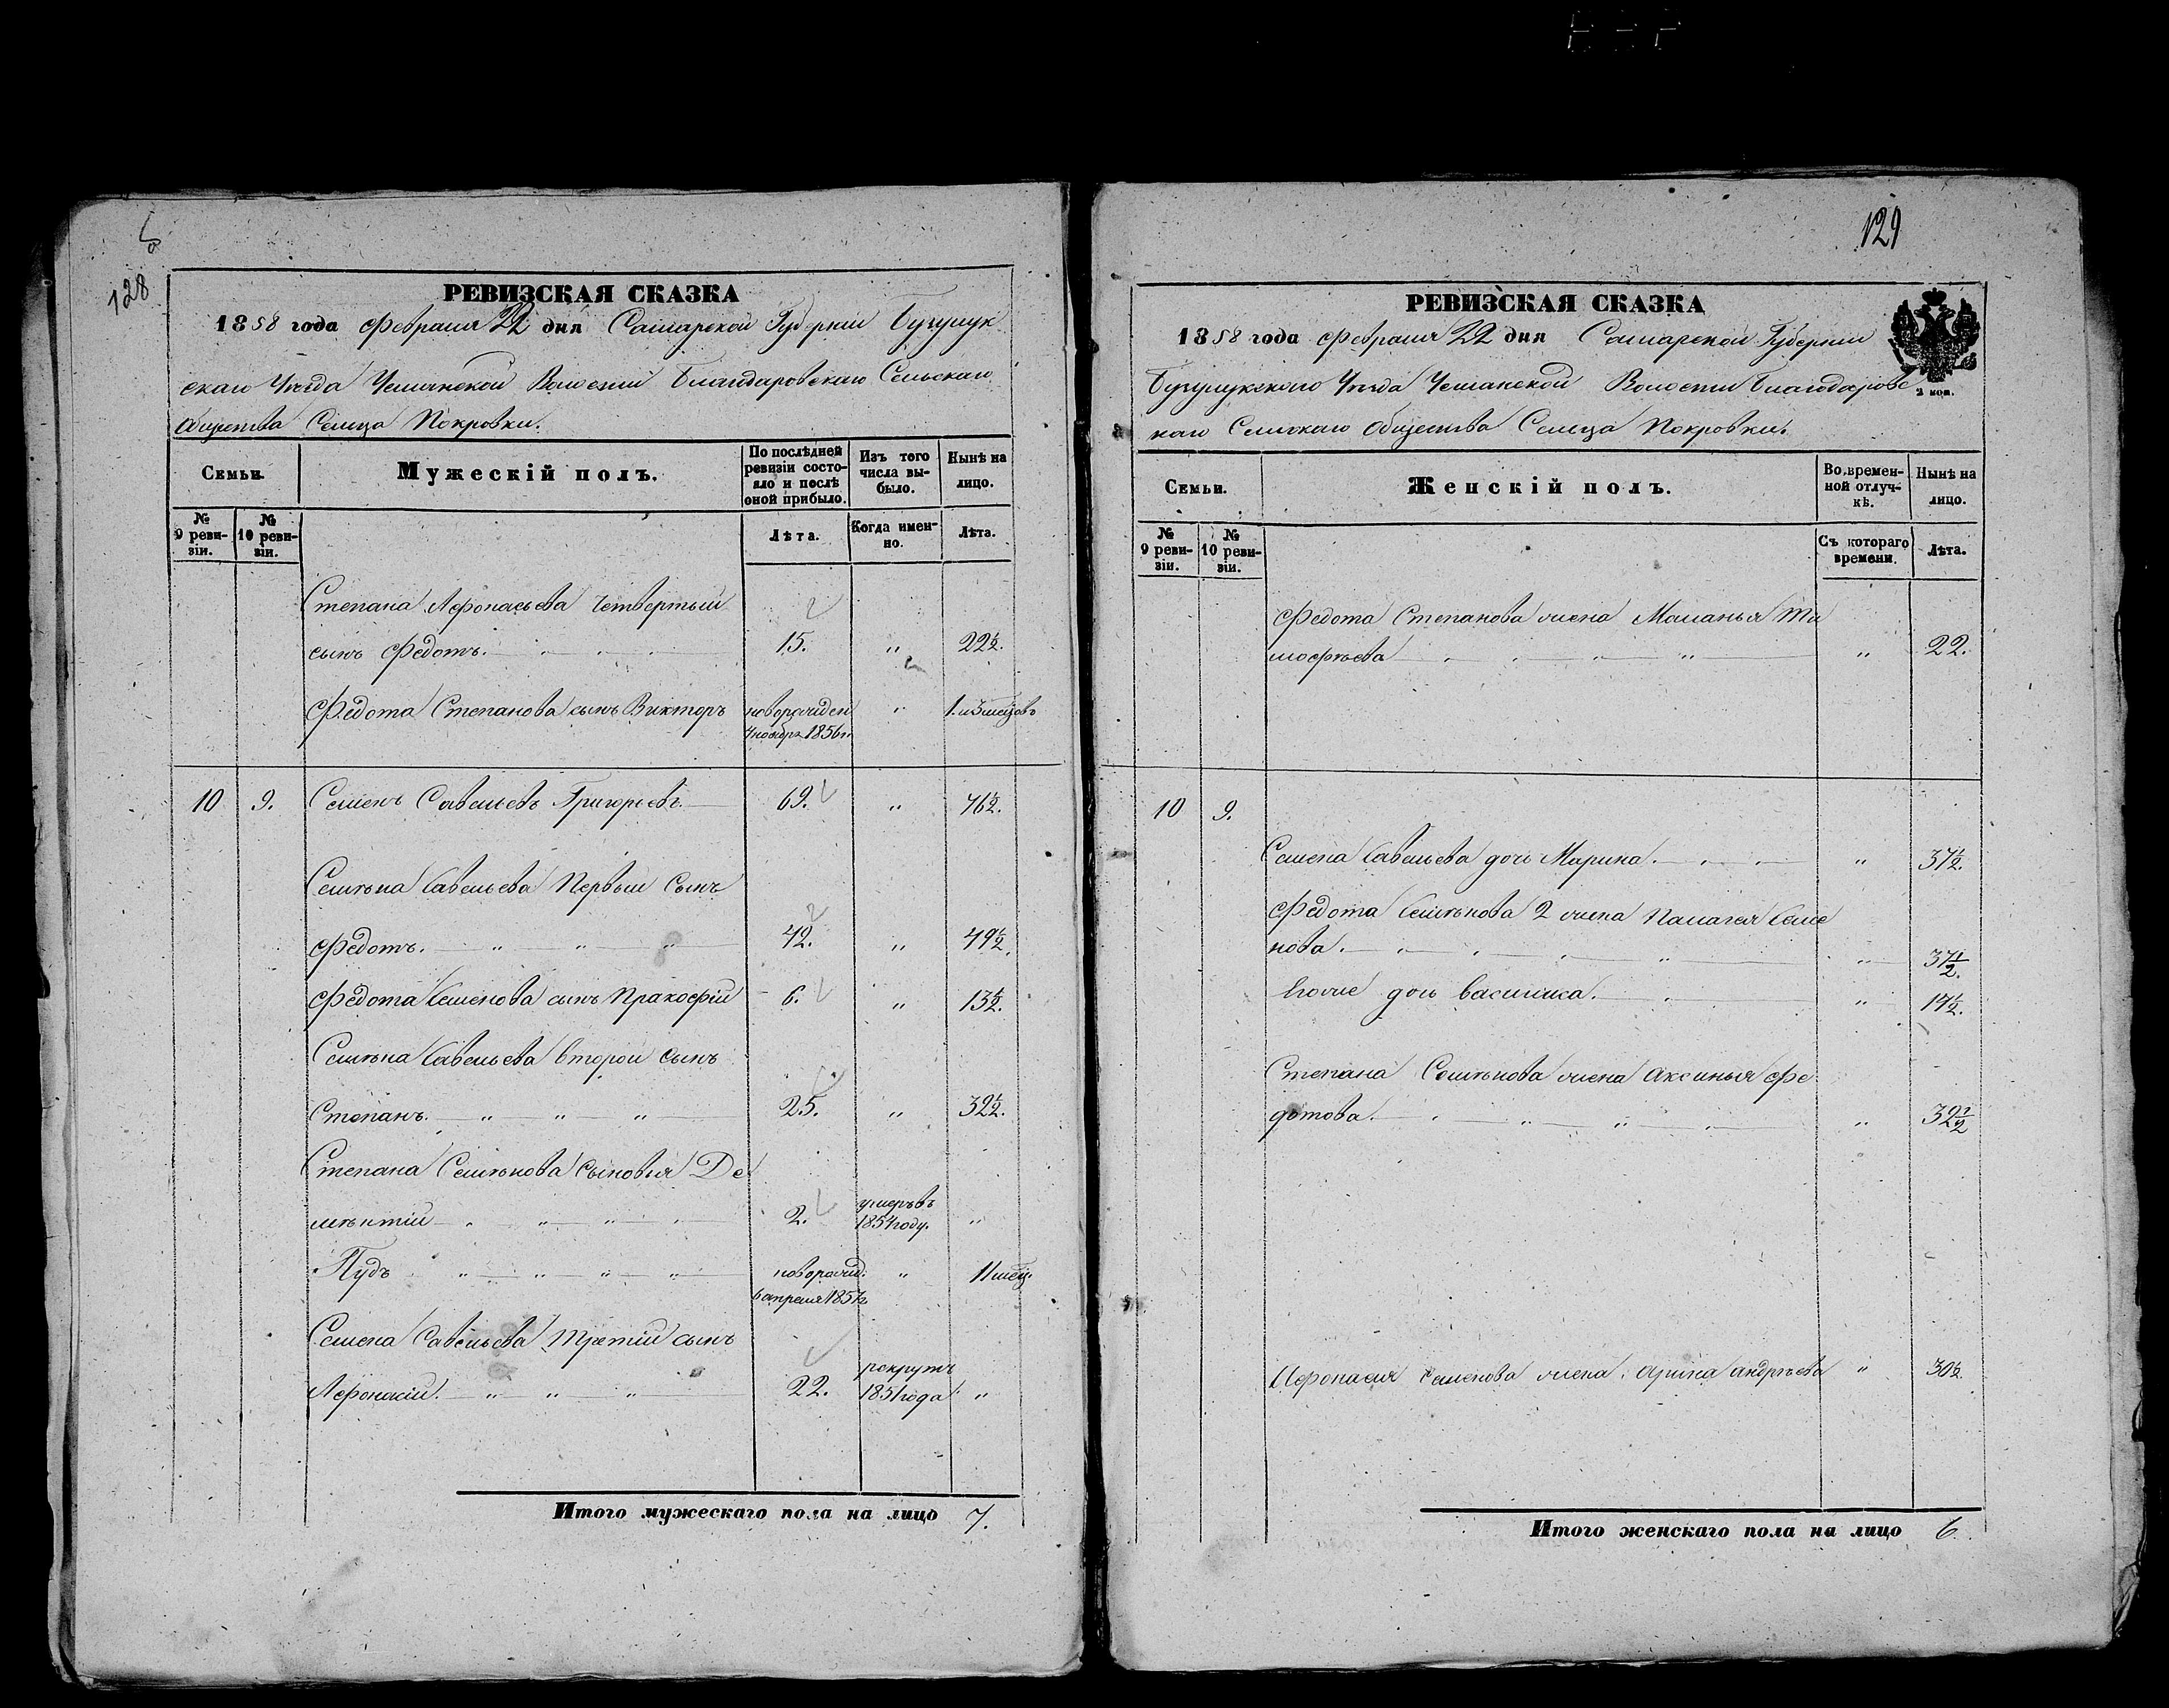 5
128
РЕВИЗСКАЯ СКАЗКА
1858 года Февраля 22 дня Самарской Губерніи Бугурук
скаго Уѣзда Волости Благодаровскаго Сельскаго
Общества Сельца Покровки.
Семьи.
Мужескій полъ.
По послѣдней ревизіи состояло и послѣ оной прибыло.
Изъ того числа выбыло.
Нынѣ на лицо.
№ 9 ревизіи.
№ 10 ревизіи.
Лѣта.
Когда именно.
Лѣта.
Степана Афонасьева четвертый
сынъ Федотъ. 15. " 22½.
Федота Степанова сынъ Викторъ новорожден " 1. и 3 месецовъ
4 ноябр. 1856 г.
10 9. Семенъ Савельевъ Григорьевъ 69. " 76½.
Семѣна Савельева Первый Сынъ
Федотъ. " " " 42. " 49½.
Федота Семенова сынъ Пракофій 6. " 13½.
Семѣна Савельева Второй Сынъ
Степанъ. " " " 25. " 32½.
Степана Семѣнова Сыновья Де
мѣнтій " " " " 2. умеръ въ 1854 году. "
Пудъ " " " " новорожд. " 11 мец.
6 апреля 1857 г.
Семена Савельева Третій сынъ
Афонасій. " " " 22. рекрутъ 1851 года "
Итого мужескаго пола на лицо 7.
129
РЕВИЗСКАЯ СКАЗКА
1858 года Февраля 22 дня Самарской Губерніи
Бугурукскаго Уѣзда Волости Благодаровс
каго Сельскаго Общества Сельца Покровки.
2 коп.
Семьи.
Женскій полъ.
Во временной отлучкѣ.
Нынѣ на лицо.
№ 9 ревизіи.
№ 10 ревизіи.
Съ котораго времени.
Лѣта.
Федота Степанова жена Маланья Ти
мофѣева " 22.
10 9.
Семена Савельева дочь Марина. " 37½.
Федота Семѣнова 2 жена Палагея Семе
нова. " 37½.
Ево же дочь Василиса. " 14½.
Степана Семѣнова жена Аксинья Фе
дотова. " 32½
Афонасія Семенова жена Арина Андрѣева " 30½.
Итого женскаго пола на лицо 6.